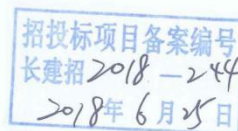 招投标项目备案编号
长建招2018—244
2018年6月25日